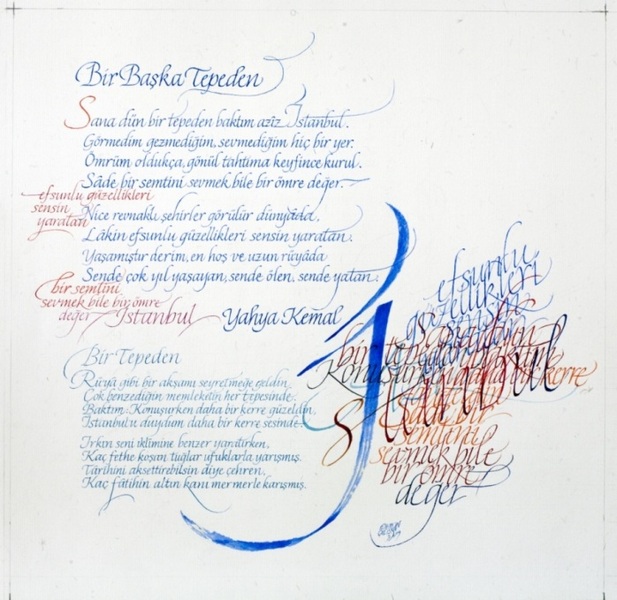 Bir Başka Tepeden
Sana dün bir tepeden baktım aziz İstanbul.
Görmedim gezmediğim, sevmediğim hiç bir yer.
Ömrüm oldukça, gönül tahtıma keyfince kurul.
Sâde bir semtini sevmek bile bir ömre değer.
efsunlu güzellikleri
sensin
yaratan
Nice revnaklı şehirler görülür dünyâda,
Lâkin efsunlu güzellikleri sensin yaratan.
Yaşamıştır derim, en hoş ve uzun rüyâda
Sende çok yıl yaşayan, sende ölen, sende yatan.
bir semtini
sevmek bile bir ömre
değer İstanbul
Yahya Kemal
Bir Tepeden
Rüyâ gibi bir akşamı seyretmeğe geldin
Çok benzediğin memleketin her tepesinde.
Baktım: Konuşurken daha bir kerre güzeldin,
İstanbul'u duydum daha bir kerre sesinde.
Irkın seni iklîmine benzer yaratırken,
Kaç fethe koşan tuğlar ufuklarla yarışmış.
Târihini aksettirebilsin diye çehren,
Kaç fâtihin altın kanı mermerle karışmış.
efsunlu
güzellikleri
sensin
yaratan
İstanbul
kerre
sâde bir
semtini
sevmek bile
bir ömre
değer